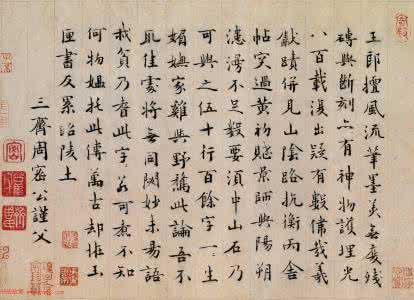 王郎擅風流筆墨美無度殘
磚與斷刻亦有神物護埋光
八百載復出疑有數偉哉羲
獻蹟併見山陰路抗衡丙舍
帖突過黃初賜景師與陽朔
漶漫不足數要須中山石乃
可與之伍十行百餘字一一生
媚嫵家雞與野鶩此論吾不
取佳處將無同閟妙未易語
我貧乃耆此字可煮不知
何物媼托此傳萬古却推玉
匣書反累昭陵土
三齊周密公謹父